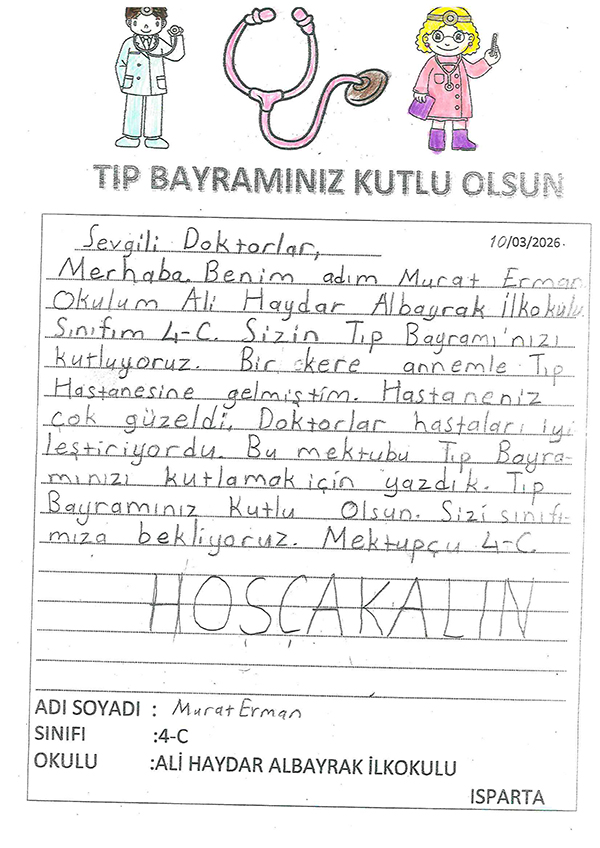 TIP BAYRAMINIZ KUTLU OLSUN
Sevgili Doktorlar,
10/03/2026.
Merhaba. Benim adım Murat Erman
Okulum Ali Haydar Albayrak İlkokulu
Sınıfım 4-C. Sizin Tıp Bayramı'nızı
kutluyoruz. Bir kere annemle Tıp
Hastanesine gelmiştim. Hastaneniz
çok güzeldi. Doktorlar hastaları iyi
leştiriyordu. Bu mektubu Tıp Bayra-
mınızı kutlamak için yazdık. Tıp
Bayramınız Kutlu Olsun. Sizi sınıfı-
mıza bekliyoruz. Mektupçu 4-C.
HOŞÇAKALIN
ADI SOYADI : Murat Erman
SINIFI :4-C
OKULU :ALİ HAYDAR ALBAYRAK İLKOKULU
ISPARTA